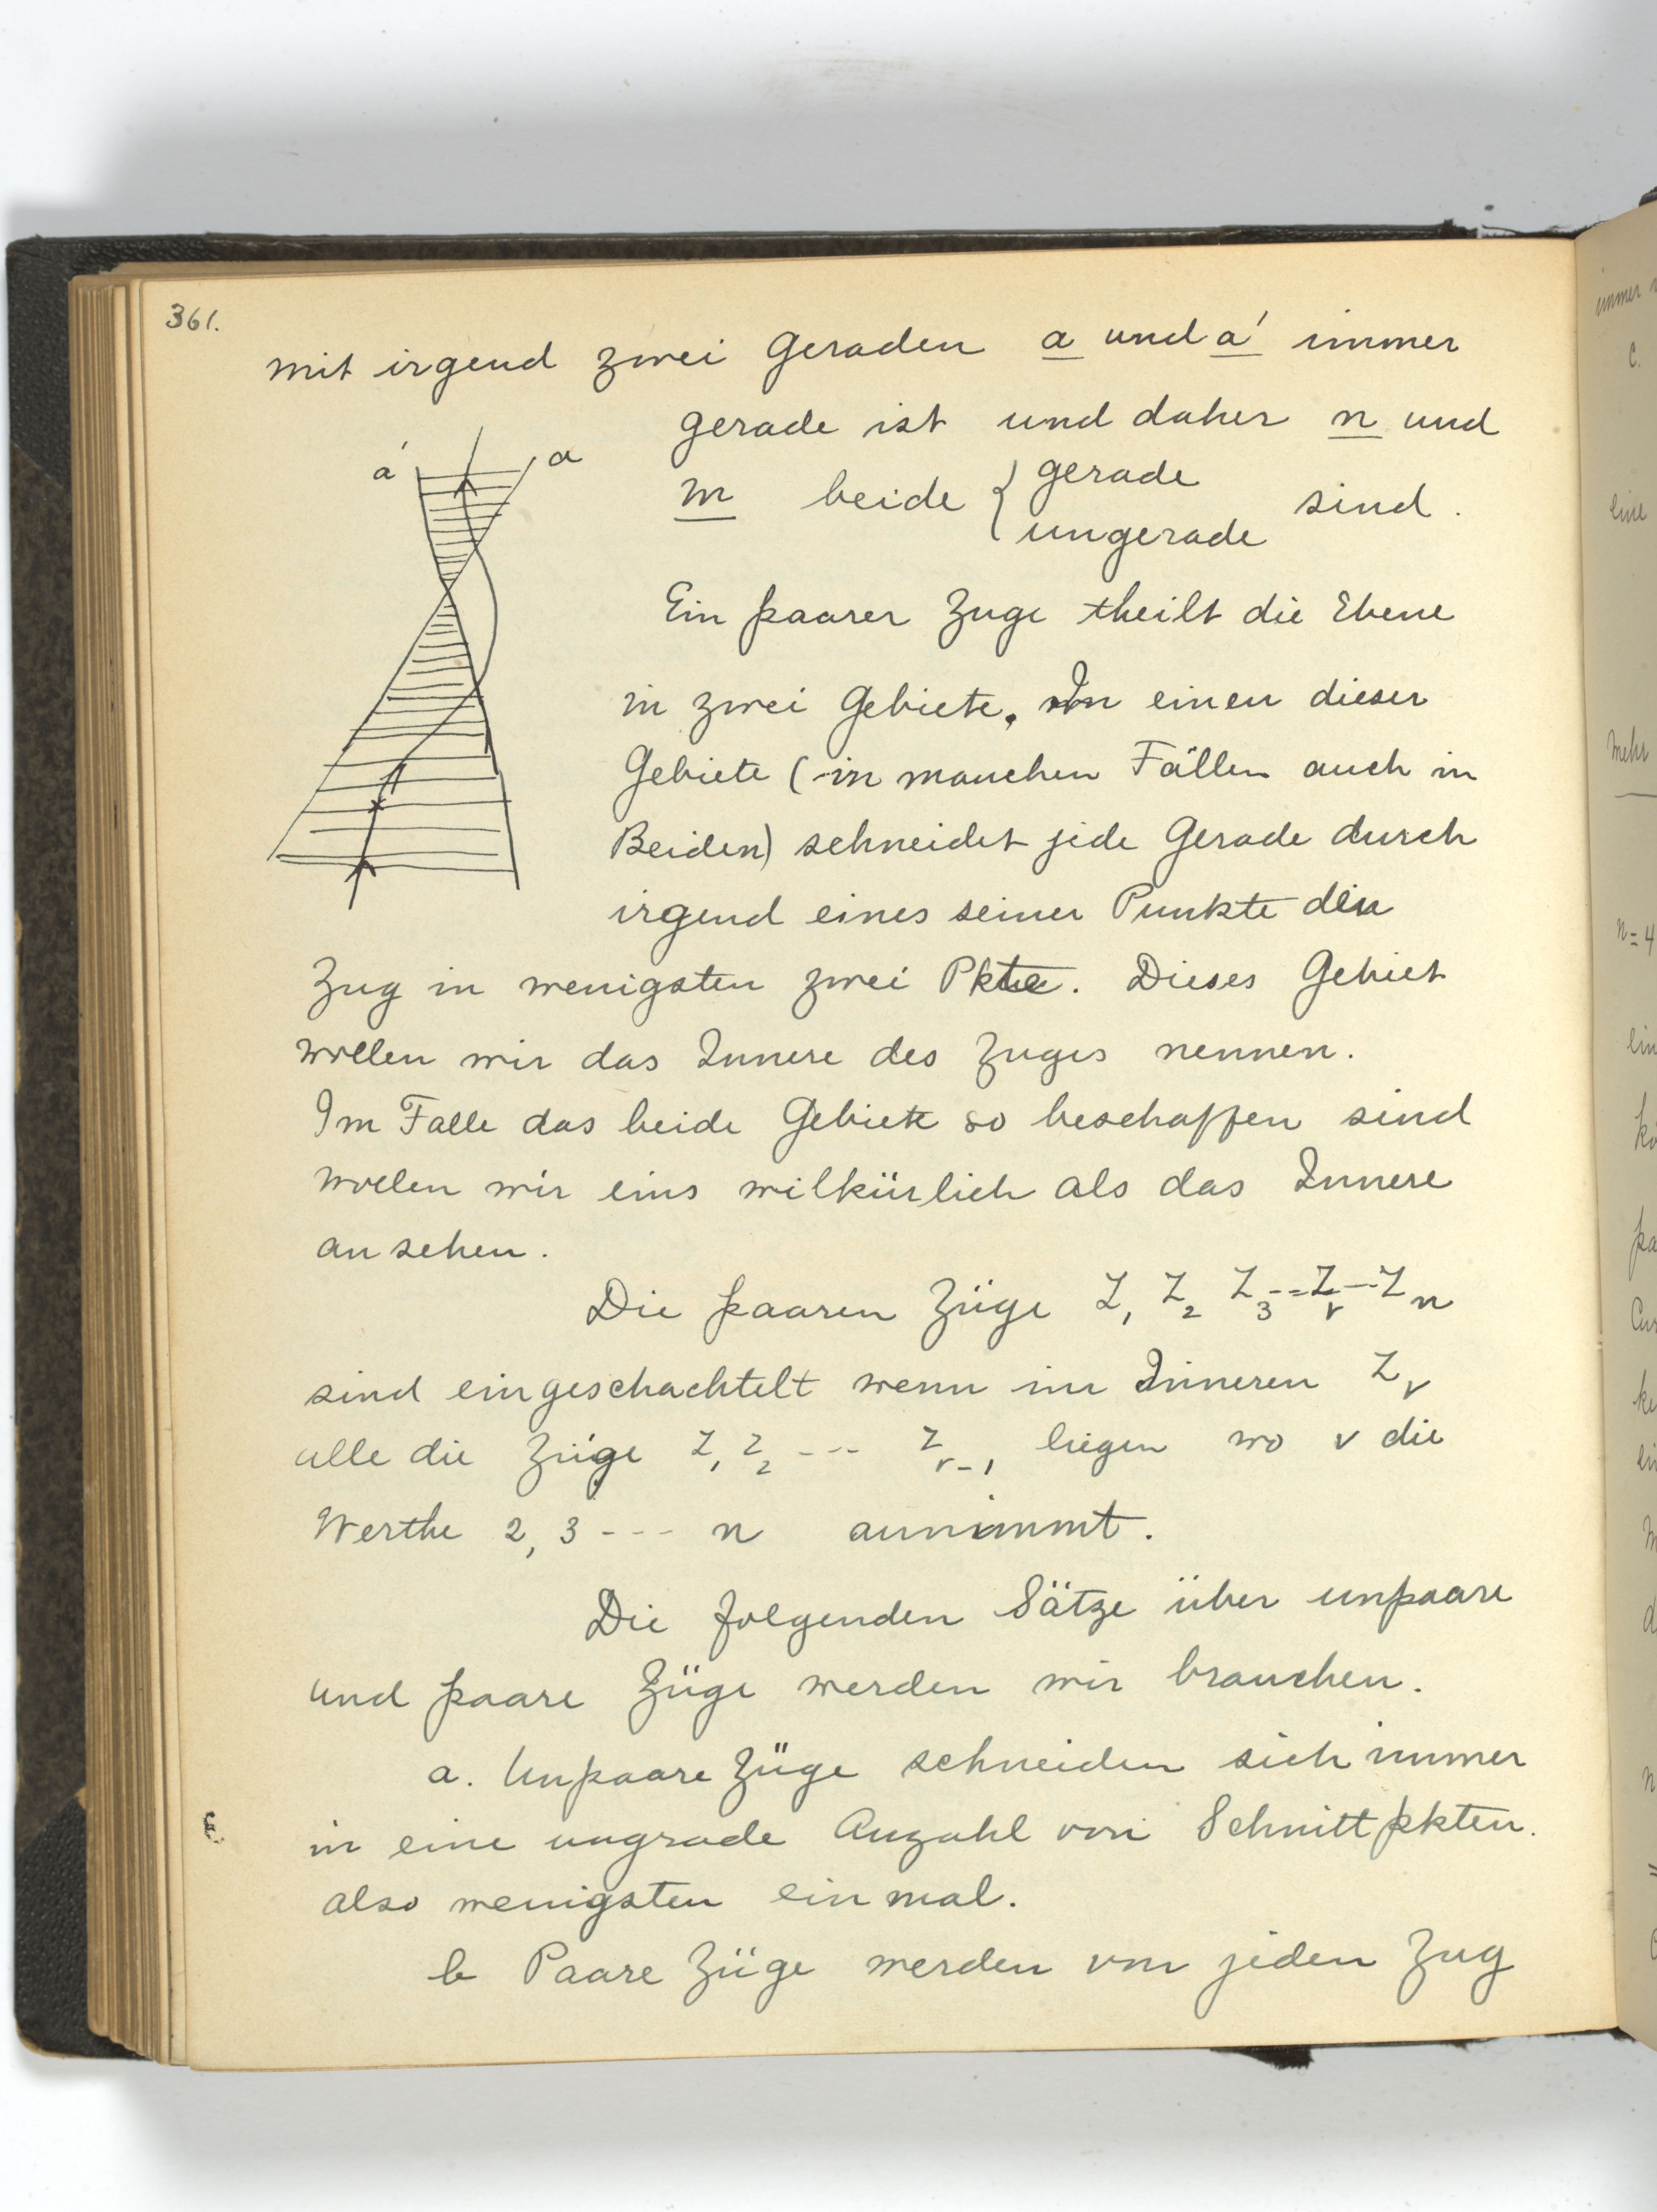 361.
mit irgend zwei Geraden a und a' immer
gerade ist und daher n und
a' a
m beide { gerade
ungerade sind.
Ein paarer Zuge theilt die Ebene
in zwei Gebiete. In einen dieser
Gebiete (in manchen Fällen auch in
Beiden) schneidet jede Gerade durch
irgend eines seiner Punkte den
Zug in wenigsten zwei Pkte. Dieses Gebiet
wollen wir das Innere des Zuges nennen.
Im Falle das beide Gebiete so beschaffen sind
wollen wir eins wilkürlich als das Innere
an sehen.
Die paaren Züge Z₁ Z₂ Z₃ -- Z_ν -- Z_n
sind eingeschachtelt wenn im Inneren Z_ν
alle die Züge Z₁ Z₂ --- Z_ν-1 liegen wo ν die
Werthe 2, 3 --- n annimmt.
Die folgenden Sätze über unpaare
und paare Züge werden wir brauchen.
a. Unpaare Züge schneiden sich immer
in eine ungrade Anzahl von Schnittpkten.
also wenigsten ein mal.
b Paare Züge werden von jeden Zug
immer
C.
eine
Mehr
n=4